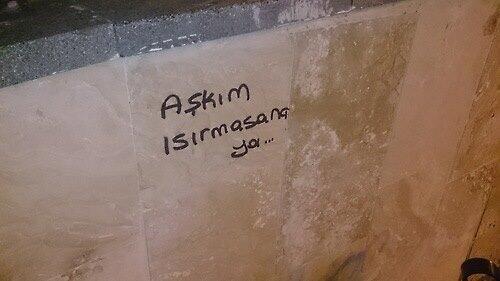 Aşkım
ısırmasana
ya...